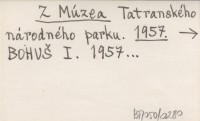 Z Múzea Tatranského
národného parku. 1957. →
BOHUŠ I. 1957...